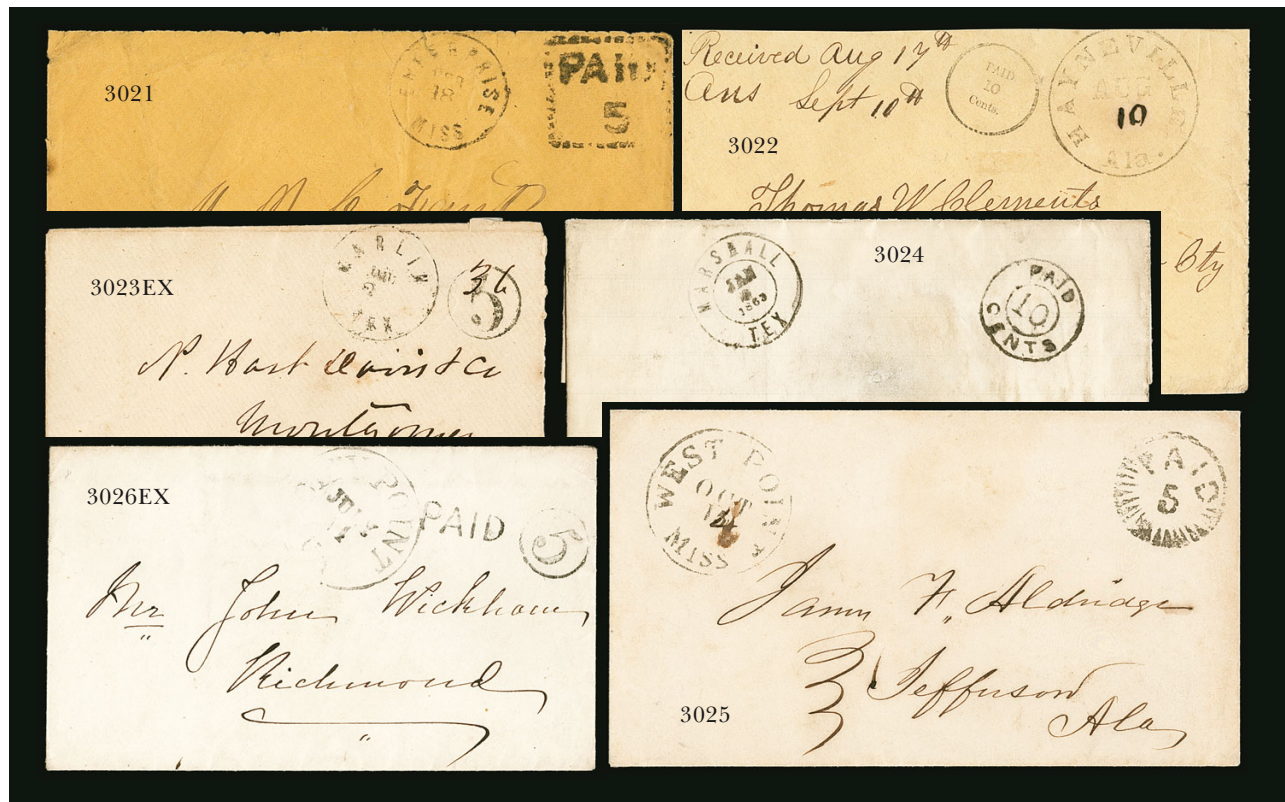 3021
ENTERPRISE
18
MISS
PAID
5
Received Aug 17th
Ans Sept 10th
PAID
10
Cents.
HAYNEVILLE
AUG
10
Ala.
3022
Thomas W Clements
Cty
3023EX
MARLIN
TEX
5
N. Hart Davis & Co
Montgomer
3024
MARSHALL
JAN
1863
TEX
PAID
10
CENTS
3026EX
POINT
PAID
5
Mr John Wickham
Richmond
WEST POINT
OCT
MISS
PAID
5
James F. Aldridge
Jefferson
Ala
3025